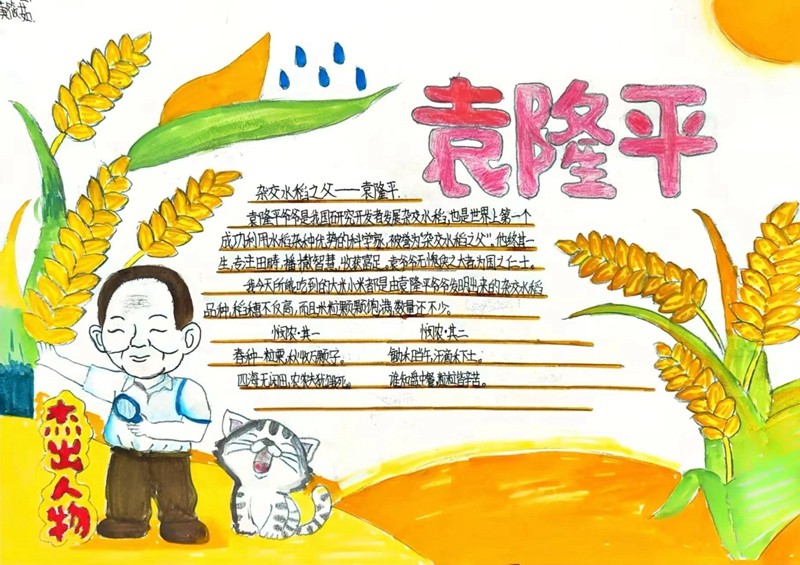 袁隆平
杂交水稻之父——袁隆平
袁隆平爷爷是我国研究开发者发展杂交水稻,也是世界上第一个
成功利用水稻杂种优势的科学家,被誉为"杂交水稻之父"。他终其一
生,专注田畴,播撒智慧,收获富足,袁爷爷无愧侠之大者为国之仁士。
我今天所能吃到的大米小米都是由袁隆平爷爷发明出来的杂交水稻
品种,稻穗不仅高,而且米粒颗颗饱满,数量还不少。
悯农·其一 悯农·其二
春种一粒粟,秋收万颗子。 锄禾日当午,汗滴禾下土。
四海无闲田,农夫犹饿死。 谁知盘中餐,粒粒皆辛苦。
杰出人物